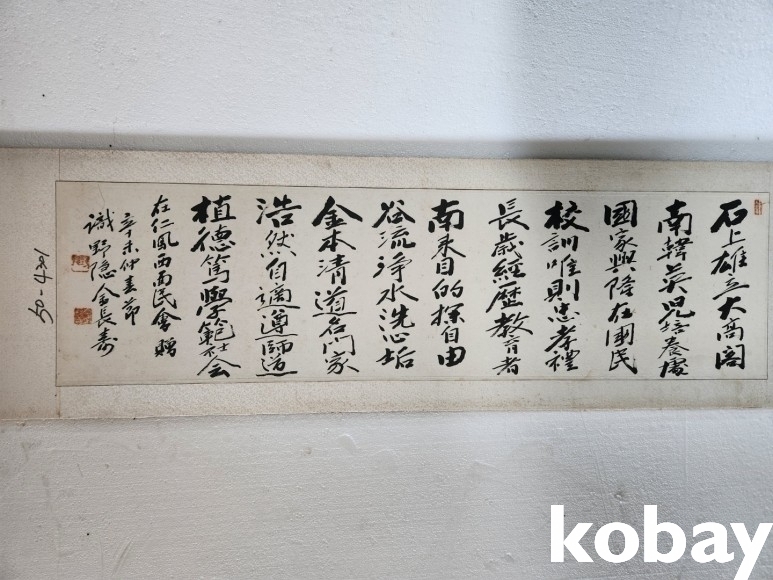 石上雄立大高閣
南韓英児培養處
國家興隆在國民
校訓唯則忠孝禮
長歲經歷教育者
南來目的探自由
谷流淨水洗心垢
金本清道名門家
浩然自適遵師道
植德篤學範社会
在仁鳳西面民會贈
辛未仲春節
識野隱金長壽
50-4201
kobay